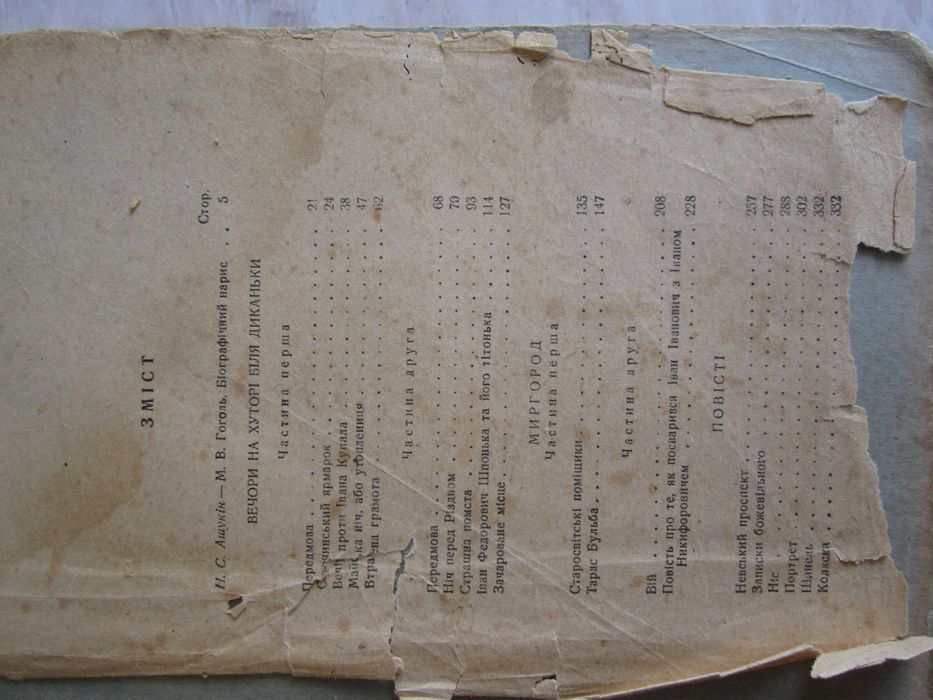 ЗМІСТ
Стор.
Н. С. Ашукін — М. В. Гоголь. Біографічний нарис . . 5
ВЕЧОРИ НА ХУТОРІ БІЛЯ ДИКАНЬКИ
Частина перша
Передмова . . . . . . . . . . . . . . . . 21
Сорочинський ярмарок . . . . . . . . . . . . 24
Вечір проти Івана Купала . . . . . . . . . . . 38
Майська ніч, або утоплениця . . . . . . . . . . 47
Втрачена грамота . . . . . . . . . . . . . . 62
Частина друга
Передмова . . . . . . . . . . . . . . . . 68
Ніч перед Різдвом . . . . . . . . . . . . . . 70
Страшна помста . . . . . . . . . . . . . . . 93
Іван Федорович Шпонька та його тітонька . . . . 114
Зачароване місце . . . . . . . . . . . . . . 127
МИРГОРОД
Частина перша
Старосвітські поміщики . . . . . . . . . . . . 135
Тарас Бульба . . . . . . . . . . . . . . . . 147
Частина друга
Вій . . . . . . . . . . . . . . . . . . . 208
Повість про те, як посварився Іван Іванович з Іваном
Никифоровичем . . . . . . . . . . . . . . 228
ПОВІСТІ
Невський проспект . . . . . . . . . . . . . . 257
Записки божевільного . . . . . . . . . . . . . 277
Ніс . . . . . . . . . . . . . . . . . . . 288
Портрет . . . . . . . . . . . . . . . . . . 302
Шинель . . . . . . . . . . . . . . . . . . 332
Коляска . . . . . . . . . . . . . . . . . . 332